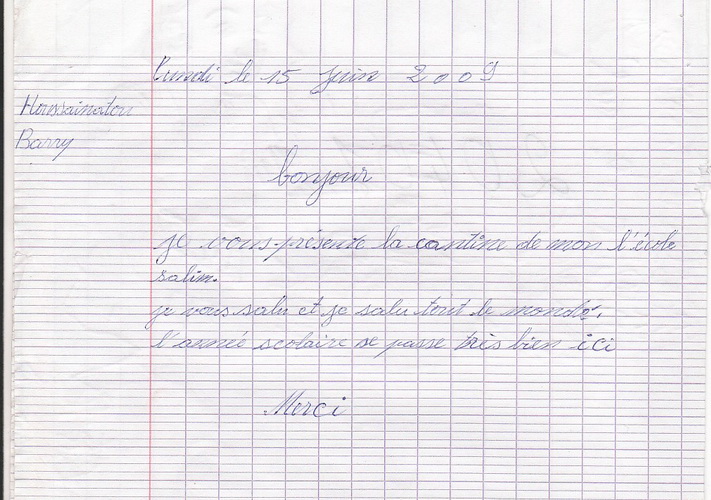 lundi le 15 juin 2009
Houssainatou
Barry
bonjour
je vous présente la cantine de mon l'école
salim.
je vous salu et je salu tout le monde.
l'année scolaire se passe très bien ici
Merci